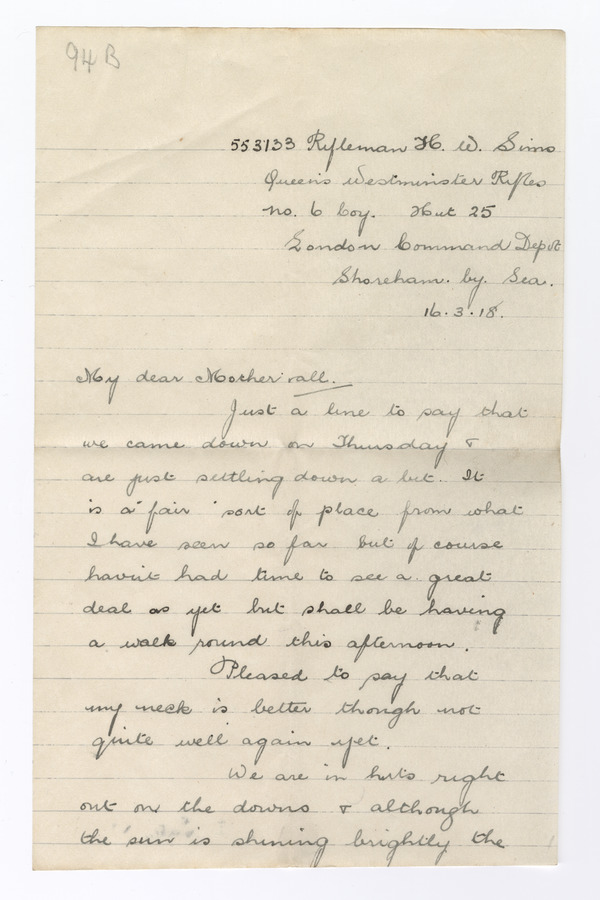 94 B
553133 Rifleman H. W. Sims
Queens Westminster Rifles
No. 6 Coy. Hut 25
London Command Depot
Shoreham. by. Sea.
16.3.18.
My dear Mother & all.
Just a line to say that
we came down on Thursday &
are just settling down a bit. It
is a "fair" sort of place from what
I have seen so far but of course
havn't had time to see a great
deal as yet but shall be having
a walk round this afternoon.
Pleased to say that
my neck is better though not
quite well again yet.
We are in huts right
out on the downs & although
the sun is shining brightly the